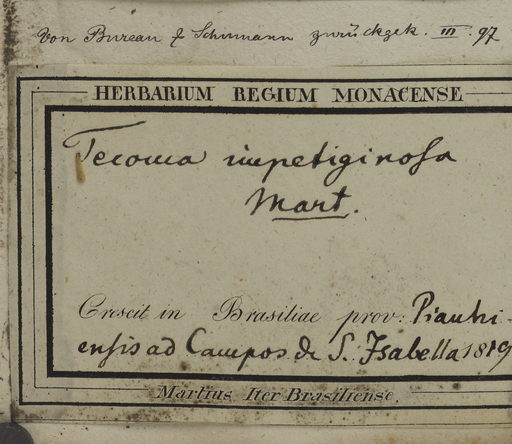 Von Bureau & Schumann zurückgek. III. 97
HERBARIUM REGIUM MONACENSE
Tecoma impetiginosa
Mart.
Crescit in Brasiliae prov: Piauhi-
ensis ad Campos de S. Isabella 1819
Martius Iter Brasiliense